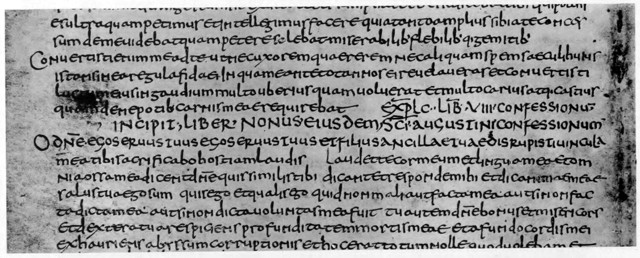 es ultra quam petimus et intellegimus facere quia tanto amplius sibi a te conces
sum de me uidebat quam petere solebat miserabilib· flebilib·q· gemitib·
Conuertisti enim me ad te ut nec uxorem quererem nec aliquam spem saeculi huius
istans in ea regula fidei in qua me ante tot annos ei reuelaueras et conuertisti
luctum eius in gaudium multo uberius quam uoluerat et multo carius atq· castius
quam de nepotib· carnis meae requirebat EXPLC· LIB· VIII· CONFESSIONUM
INCIPIT· LIBER· NONUS· EIUSDEM· SCI AUGUSTINI CONFESSIONUM
O dne ego seruus tuus ego seruus tuus et filius ancillae tuae disrupisti uincula
mea tibi sacrificabo hostiam laudis Laudet te cor meum et lingua mea et om
nia ossa mea dicent dne quis similis tibi dicant et responde mihi et dic animae meae
salus tua ego sum quis ego et qualis ego quid non mali aut facta mea aut si non fac
ta dicta mea aut si non dicta uoluntas mea fuit tu autem dne bonus et misericors
et dextera tua respiciens profunditatem mortis meae et a fundo cordis mei
exhauriens abyssum corruptionis et hoc erat totum nolle quod uolebam et